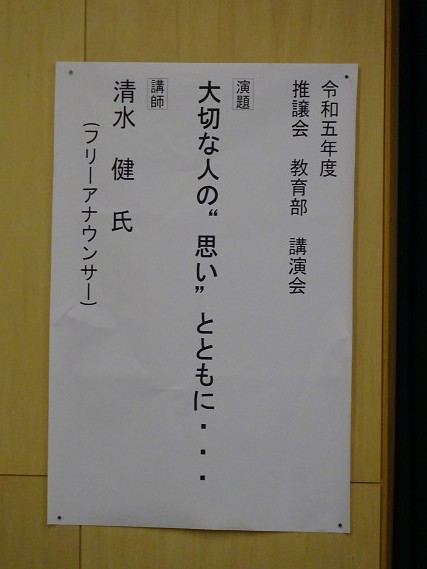 令和五年度
推譲会 教育部 講演会
演題
大切な人の“思い”とともに・・・
講師
清水 健 氏
(フリーアナウンサー)